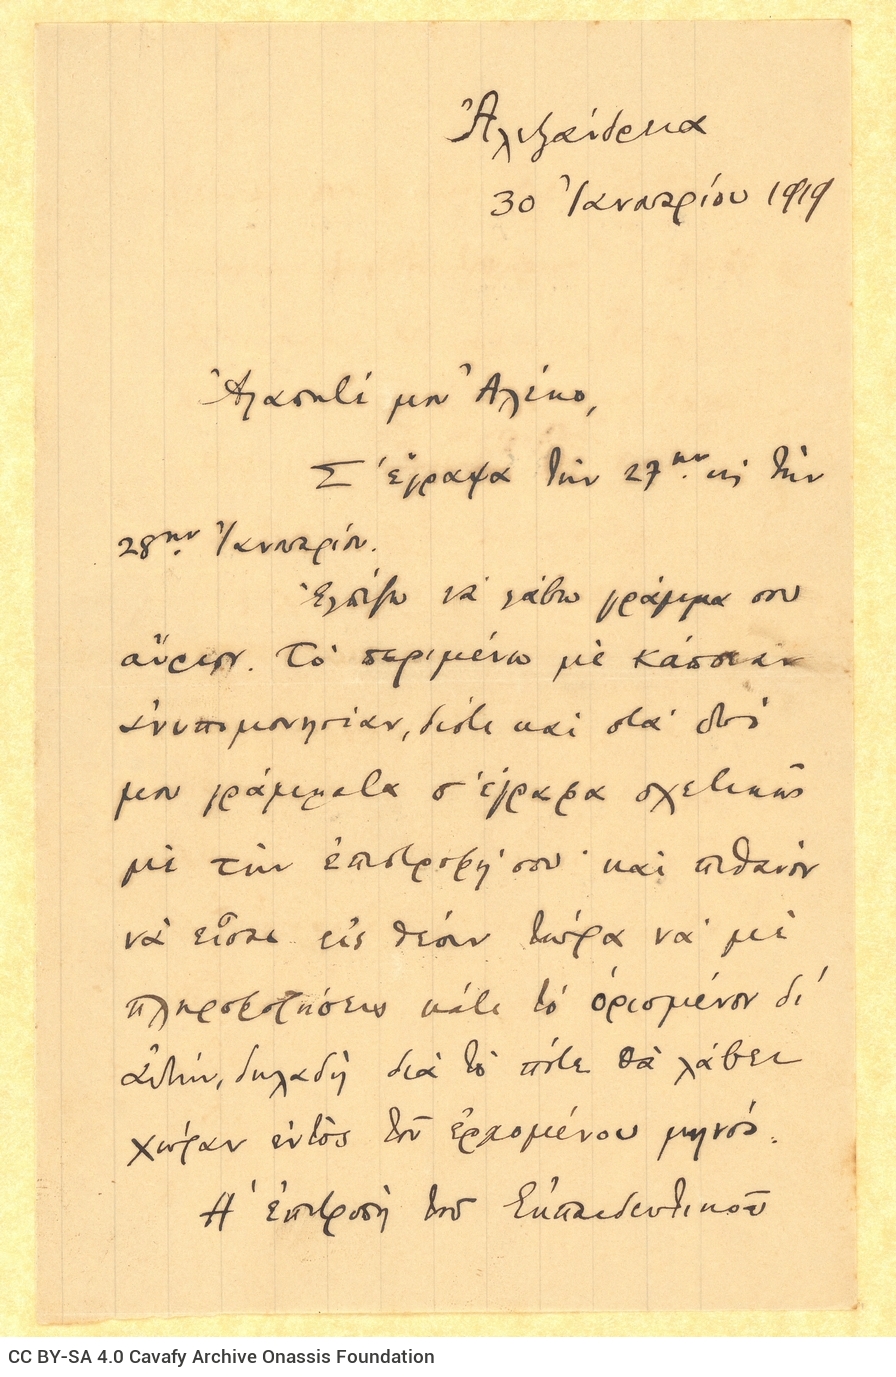 Ἀλεξάνδρεια
30 Ἰανουαρίου 1919
Ἀγαπητέ μου Ἀλέκο,
Σ' ἔγραψα τὴν 27ην. κη τὴν
28ην. Ἰανουαρίου.
Ἐλπίζω νὰ λάβω γράμμα σου
αὔριον. Τὸ περιμένω μὲ κάποιαν
ἀνυπομονησίαν, διότι καὶ στὰ δυό
μου γράμματα σ' ἔγραφα σχετικῶς
μὲ τὴν ἐπιστροφή σου· καὶ πιθανὸν
νὰ εἶσαι εἰς θέσιν τώρα νὰ μὲ
πληροφορήσεις κάτι τὸ ὁρισμένον δι'
αὐτήν, δηλαδὴ διὰ τὸ πότε θὰ λάβει
χώραν ἐντὸς τοῦ ἐρχομένου μηνός.
Ἡ ἐπιτροπὴ τοῦ Ἐκπαιδευτικοῦ
CC BY-SA 4.0 Cavafy Archive Onassis Foundation